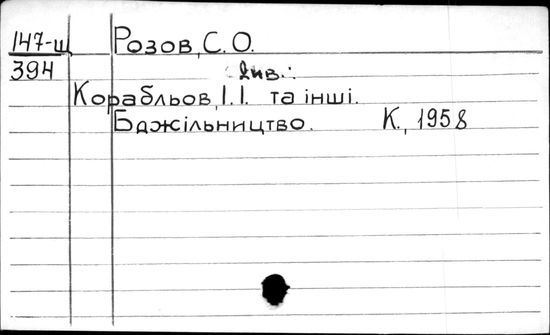 147-щ Розов, С. О.
394 Див.:
Корабльов, І. І. та інші.
Бджільництво. К., 1958